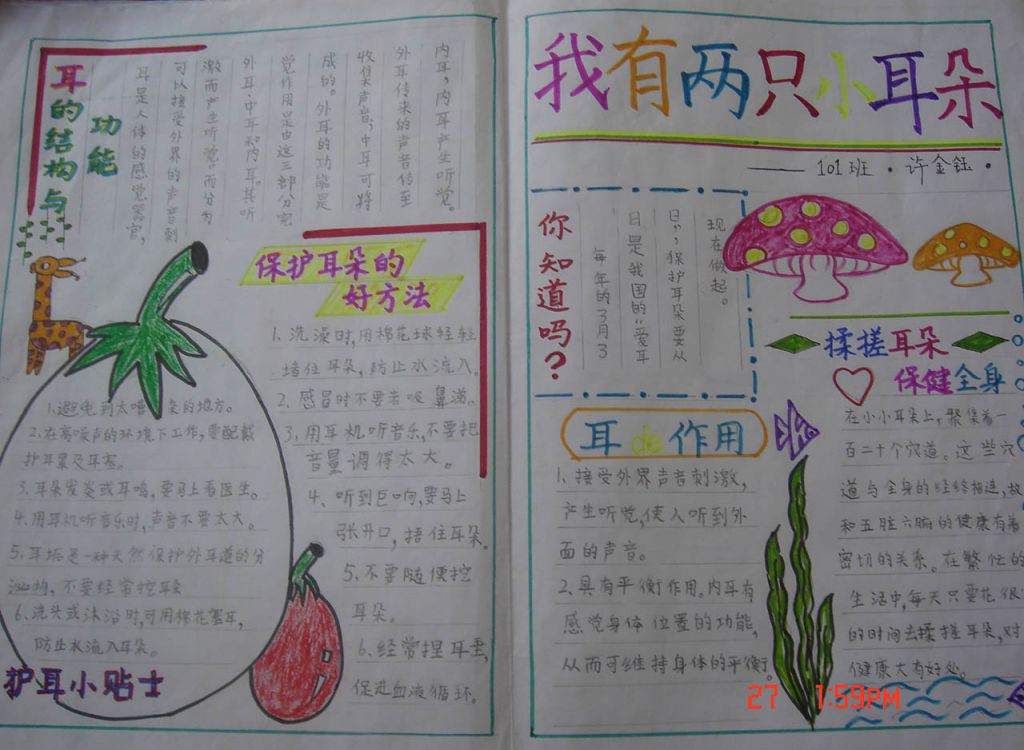 耳的结构与
功能
耳是人体的感觉器官,
可以接受外界的声音刺
激而产生听觉。而分为
外耳、中耳和内耳。其听
觉作用是由这三部分完
成的。外耳的功能是
收集声音,中耳可将
外耳传来的声音传至
内耳,内耳产生听觉。
保护耳朵的
好方法
1、洗澡时,用棉花球轻轻
堵住耳朵,防止水流入。
2、感冒时不要去吸鼻涕。
3、用耳机听音乐,不要把
音量调得太大。
4、听到巨响,要马上
张开口,捂住耳朵。
5、不要随便挖
耳朵。
6、经常捏耳垂,
促进血液循环。
1.避免到太嘈杂的地方。
2.在高噪声的环境下工作,要配戴
护耳罩及耳塞。
3.耳朵发炎或耳鸣,要马上看医生。
4.用耳机听音乐时,声音不要太大。
5.耳垢是一种天然保护外耳道的分
泌物,不要经常挖耳
6.洗头或沐浴时,可用棉花塞耳,
防止水流入耳朵。
护耳小贴士
我有两只小耳朵
——101班·许金钰·
你知道吗?
每年的3月3
日是我国的“爱耳
日”,保护耳朵要从
现在做起。
耳de作用
1、接受外界声音刺激,
产生听觉,使人听到外
面的声音。
2、具有平衡作用。内耳有
感觉身体位置的功能,
从而可维持身体的平衡。
揉搓耳朵
保健全身
在小小耳朵上,聚集着一
百二十个穴道。这些穴
道与全身的经络相连,故
和五脏六腑的健康有着
密切的关系。在繁忙的
生活中,每天只要花很
的时间去揉搓耳朵,对
健康大有好处。
27 1:59PM